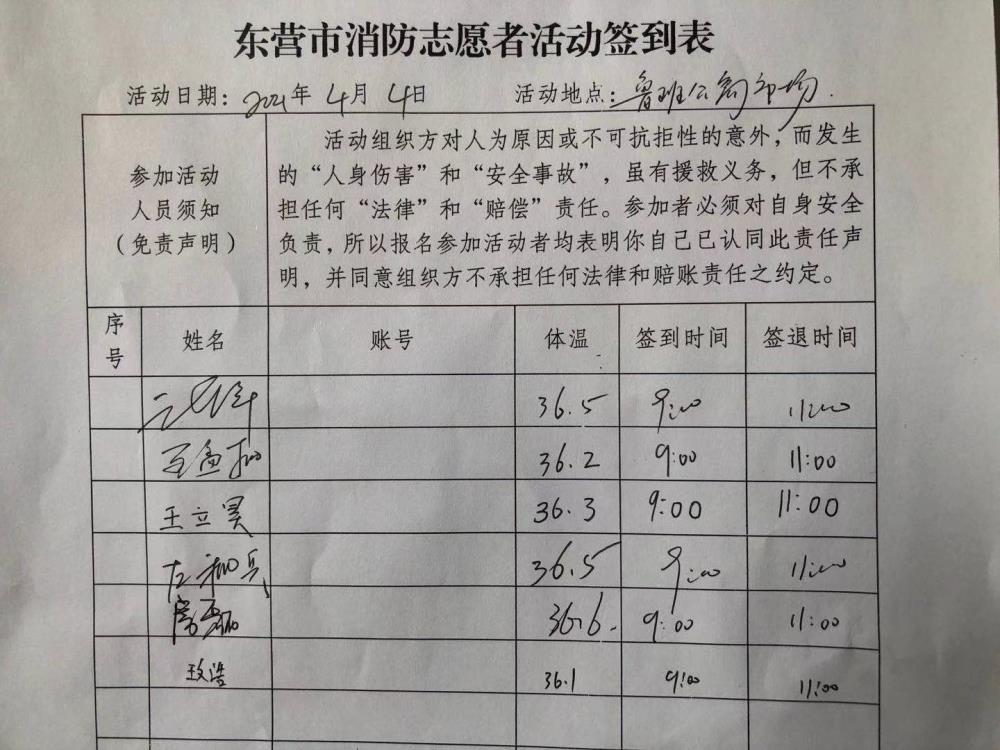 东营市消防志愿者活动签到表
活动日期：2021年 4月 4日 活动地点：鲁班公寓
参加活动
人员须知
（免责声明）
活动组织方对人为原因或不可抗拒性的意外，而发生
的“人身伤害”和“安全事故”，虽有援救义务，但不承
担任何“法律”和“赔偿”责任。参加者必须对自身安全
负责，所以报名参加活动者均表明你自己已认同此责任声
明，并同意组织方不承担任何法律和赔账责任之约定。
序号 姓名 账号 体温 签到时间 签退时间
36.5 9:00 11:00
36.2 9:00 11:00
王立昊 36.3 9:00 11:00
36.5 9:00 11:00
36.6. 9:00 11:00
36.1 9:00 11:00